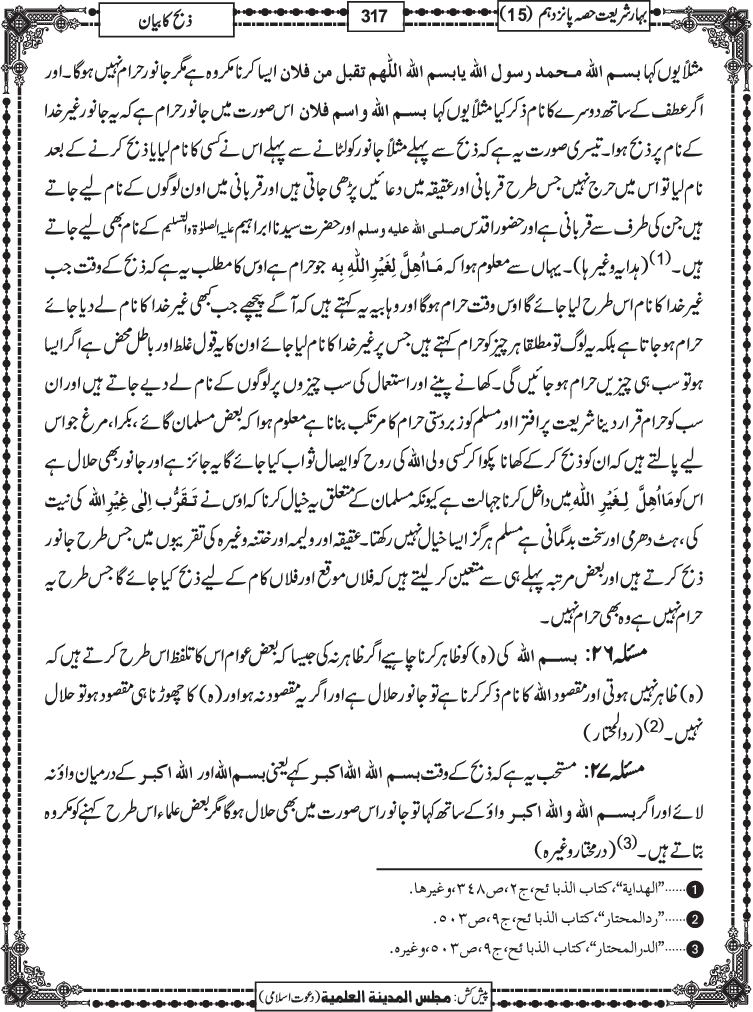 بہار شریعت حصہ پانزدہم (15)
317
ذبح کا بیان
مثلاً یوں کہا بسم الله محمد رسول الله یا بسم الله اللّٰهم تقبل من فلان ایسا کرنا مکروہ ہے مگر جانور حرام نہیں ہوگا۔ اور
اگر عطف کے ساتھ دوسرے کا نام ذکر کیا مثلاً یوں کہا بسم الله و اسم فلان اس صورت میں جانور حرام ہے کہ یہ جانور غیر خدا
کے نام پر ذبح ہوا۔ تیسری صورت یہ ہے کہ ذبح سے پہلے مثلاً جانور کو لٹانے سے پہلے اس نے کسی کا نام لیا یا ذبح کرنے کے بعد
نام لیا تو اس میں حرج نہیں جس طرح قربانی اور عقیقہ میں دعائیں پڑھی جاتی ہیں اور قربانی میں اون لوگوں کے نام لیے جاتے
ہیں جن کی طرف سے قربانی ہے اور حضور اقدس صلی الله علیه وسلم اور حضرت سیدنا ابراہیم علیہ الصلوٰۃ والتسلیم کے نام بھی لیے جاتے
ہیں۔(1) (ہدایہ وغیرہا)۔ یہاں سے معلوم ہوا کہ مَا اُهِلَّ لِغَيْرِ اللّٰهِ بِه جو حرام ہے اوس کا مطلب یہ ہے کہ ذبح کے وقت جب
غیر خدا کا نام اس طرح لیا جائے گا اوس وقت حرام ہوگا اور وہابیہ یہ کہتے ہیں کہ آگے پیچھے جب کبھی غیر خدا کا نام لے دیا جائے
حرام ہو جاتا ہے بلکہ یہ لوگ تو مطلقا ہر چیز کو حرام کہتے ہیں جس پر غیر خدا کا نام لیا جائے اون کا یہ قول غلط اور باطل محض ہے اگر ایسا
ہو تو سب ہی چیزیں حرام ہو جائیں گی۔ کھانے پینے اور استعمال کی سب چیزوں پر لوگوں کے نام لے دیے جاتے ہیں اور ان
سب کو حرام قرار دینا شریعت پر افترا اور مسلم کو زبردستی حرام کا مرتکب بنانا ہے معلوم ہوا کہ بعض مسلمان گائے، بکرا، مرغ جو اس
لیے پالتے ہیں کہ ان کو ذبح کر کے کھانا پکوا کر کسی ولی الله کی روح کو ایصال ثواب کیا جائے گا یہ جائز ہے اور جانور بھی حلال ہے
اس کو مَا اُهِلَّ لِغَيْرِ اللّٰه میں داخل کرنا جہالت ہے کیونکہ مسلمان کے متعلق یہ خیال کرنا کہ اوس نے تَقَرُّب اِلٰی غَیْرِ الله کی نیت
کی، ہٹ دھرمی اور سخت بدگمانی ہے مسلم ہرگز ایسا خیال نہیں رکھتا۔ عقیقہ اور ولیمہ اور ختنہ وغیرہ کی تقریبوں میں جس طرح جانور
ذبح کرتے ہیں اور بعض مرتبہ پہلے ہی سے متعین کر لیتے ہیں کہ فلاں موقع اور فلاں کام کے لیے ذبح کیا جائے گا جس طرح یہ
حرام نہیں ہے وہ بھی حرام نہیں۔
مسئلہ ۲۶: بسم الله کی (ہ) کو ظاہر کرنا چاہیے اگر ظاہر نہ کی جیسا کہ بعض عوام اس کا تلفظ اس طرح کرتے ہیں کہ
(ہ) ظاہر نہیں ہوتی اور مقصود الله کا نام ذکر کرنا ہے تو جانور حلال ہے اور اگر یہ مقصود نہ ہو اور (ہ) کا چھوڑنا ہی مقصود ہو تو حلال
نہیں۔(2) (ردالمحتار)
مسئلہ ۲۷: مستحب یہ ہے کہ ذبح کے وقت بسم الله الله اکبر کہے یعنی بسم الله اور الله اکبر کے درمیان واؤ نہ
لائے اور اگر بسم الله والله اکبر واؤ کے ساتھ کہا تو جانور اس صورت میں بھی حلال ہوگا مگر بعض علماء اس طرح کہنے کو مکروہ
بتاتے ہیں۔(3) (درمختار وغیرہ)
1 ......”الهداية“، كتاب الذبائح، ج٢، ص٣٤٨، وغيرها.
2 ......”ردالمحتار“، كتاب الذبائح، ج٩، ص٥٠٣.
3 ......”الدرالمختار“، كتاب الذبائح، ج٩، ص٥٠٣، وغيره.
پیش کش: مجلس المدينة العلمية (دعوت اسلامی)